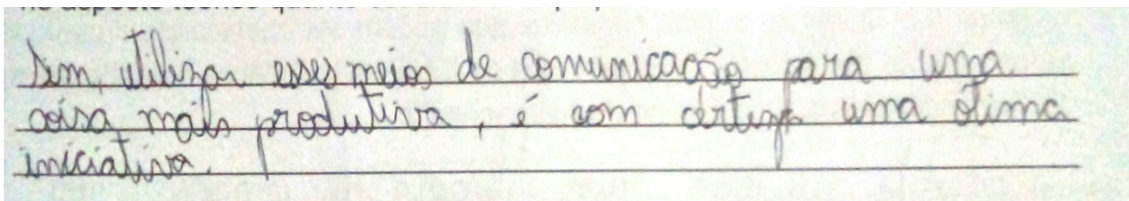 Sim, utilizar esses meios de comunicação para uma
coisa mais produtiva, é com certeza uma ótima
iniciativa.